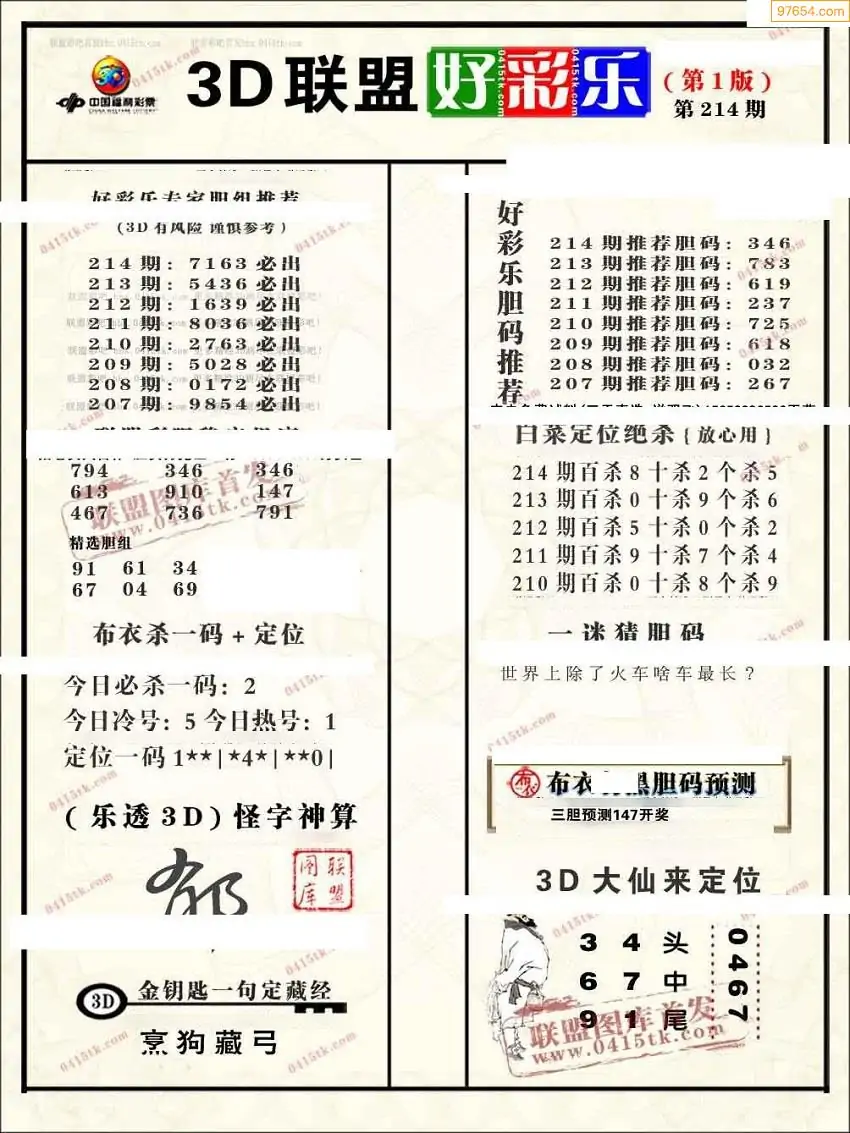 97654.com
中国福利彩票
CHINA WELFARE LOTTERY
3D联盟好彩乐
0415tk.com
0415tk.com
(第1版)
第214期
好彩乐专家胆组推荐
(3D有风险 谨慎参考)
214期: 7163必出
213期: 5436必出
212期: 1639必出
211期: 8036必出
210期: 2763必出
209期: 5028必出
208期: 0172必出
207期: 9854必出
794 346 346
613 910 147
467 736 791
精选胆组
91 61 34
67 04 69
布衣杀一码+定位
今日必杀一码: 2
今日冷号: 5 今日热号: 1
定位一码 1**|*4*|**0|
(乐透3D)怪字神算
联盟图库
3D
金钥匙一句定藏经
烹狗藏弓
好彩乐胆码推荐
214期推荐胆码: 346
213期推荐胆码: 783
212期推荐胆码: 619
211期推荐胆码: 237
210期推荐胆码: 725
209期推荐胆码: 618
208期推荐胆码: 032
207期推荐胆码: 267
白菜定位绝杀{放心用}
214期百杀8十杀2个杀5
213期百杀0十杀9个杀6
212期百杀5十杀0个杀2
211期百杀9十杀7个杀4
210期百杀0十杀8个杀9
一迷猜胆码
世界上除了火车啥车最长?
布衣
胆码预测
三胆预测147开奖
3D大仙来定位
3 4 头
6 7 中
9 1 尾
0467
联盟图库首发
www.0415tk.com